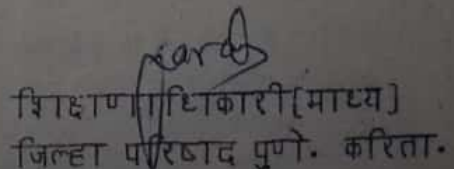 शिक्षणाधिकारी[माध्य]
जिल्हा परिषाद पुणे. करिता.